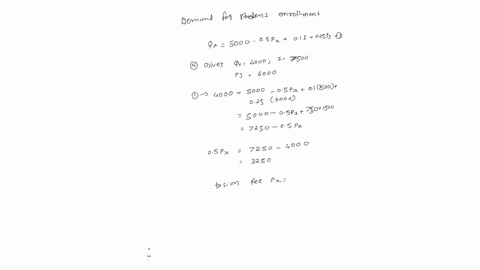 Demand for student enrollment
Qx = 5000 - 0.5Px + 0.1I + 0.25Py - ①
Given Qx = 4000, I = 7500
Py = 6000
① → 4000 = 5000 - 0.5Px + 0.1(7500)+
0.25 (6000)
= 5000 - 0.5Px + 750+1500
= 7250 - 0.5Px
0.5Px = 7250 - 4000
= 3250
tusion fee Px =